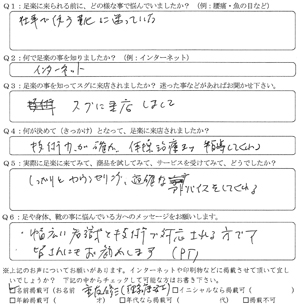 Q1：足楽に来られる前に、どの様な事で悩んでいましたか？（例：腰痛・魚の目など）
仕事で使う靴に困っていた
Q2：何で足楽の事を知りましたか？（例：インターネット）
インターネット
Q3：足楽の事を知ってスグに来店されましたか？迷った事などがあればお聞かせ下さい。
スグに来店しました
Q4：何が決めて（きっかけ）となって、足楽に来店されましたか？
技術力が確か、
Q5：実際に足楽に来てみて、商品を試してみて、サービスを受けてみて、どうでしたか？
しっかりとカウンセリング、適確な
アドバイスをしてくれる
Q6：足や身体、靴の事に悩んでいる方へのメッセージをお願いします。
・幅広い知識と技術で対応される方です
皆さんにもお勧めします（PT）
※上記のお声についてお願いがあります。インターネットや印刷物などに掲載させて頂いて宜し
いでしょうか？ 下記の中からチェックして可能な方はお書き下さい。
名前掲載可（お名前 ）□イニシャルなら掲載可（ ）
□年齢掲載可（ 才）□年代なら掲載可（ 代）□掲載不可